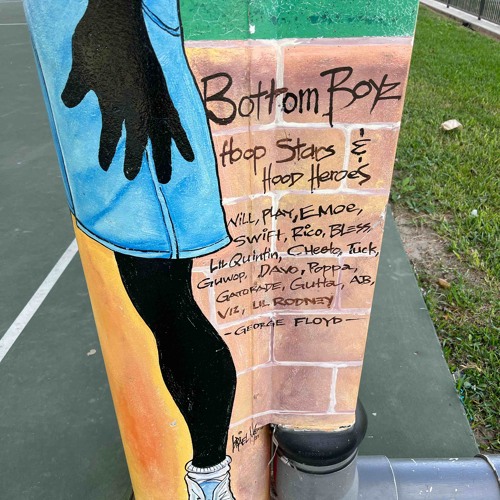 Bottom Boyz
Hoop Stars &
Hood Heroes
Will, Play, Emoe,
Swift, Rico, Bless,
Lil Quintin, Cheeto, Tuck,
Guwop, Davo, Poppa,
Gatorade, Gutta, AB,
Viz, Lil Rodney
-George Floyd-